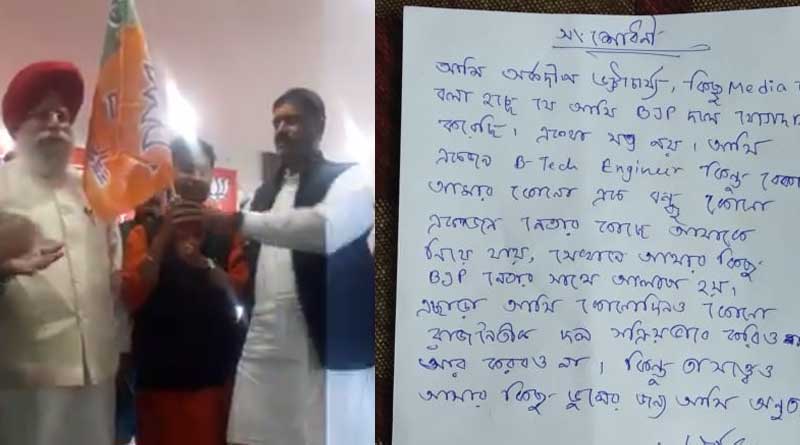 সংশোধনী
আমি অর্কদীপ্ত ভট্টাচার্য্য, কিছু Media
বলা হচ্ছে যে আমি BJP দলে যোগদান
করেছি। এতথ্য সত্য নয়। আমি
একজন B-Tech Engineer কিন্তু বেকা
আমার কোনো এক বন্ধু কোনো
একজন নেতার কাছে আমাকে
নিয়ে যায়, যেখানে আমার কিছু
BJP নেতার সাথে আলাপ হয়।
এছাড়া আমি কোনোদিনও কোনো
রাজনৈতিক দল সক্রিয়ভাবে করিও
আর করবও না। কিন্তু তা সত্ত্বেও
আমার কিছু ভুলের জন্য আমি অনুত